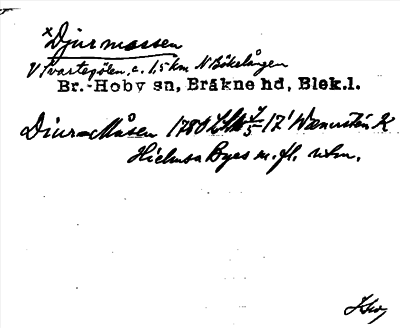 x Djurmossen
V Svartegölen, c. 1,5 km N Bökelången
Br.-Hoby sn, Bräkne hd, Blek.l.
Diur-Måsen 1780 5 17
Hielmsa Byes m.fl. utm.